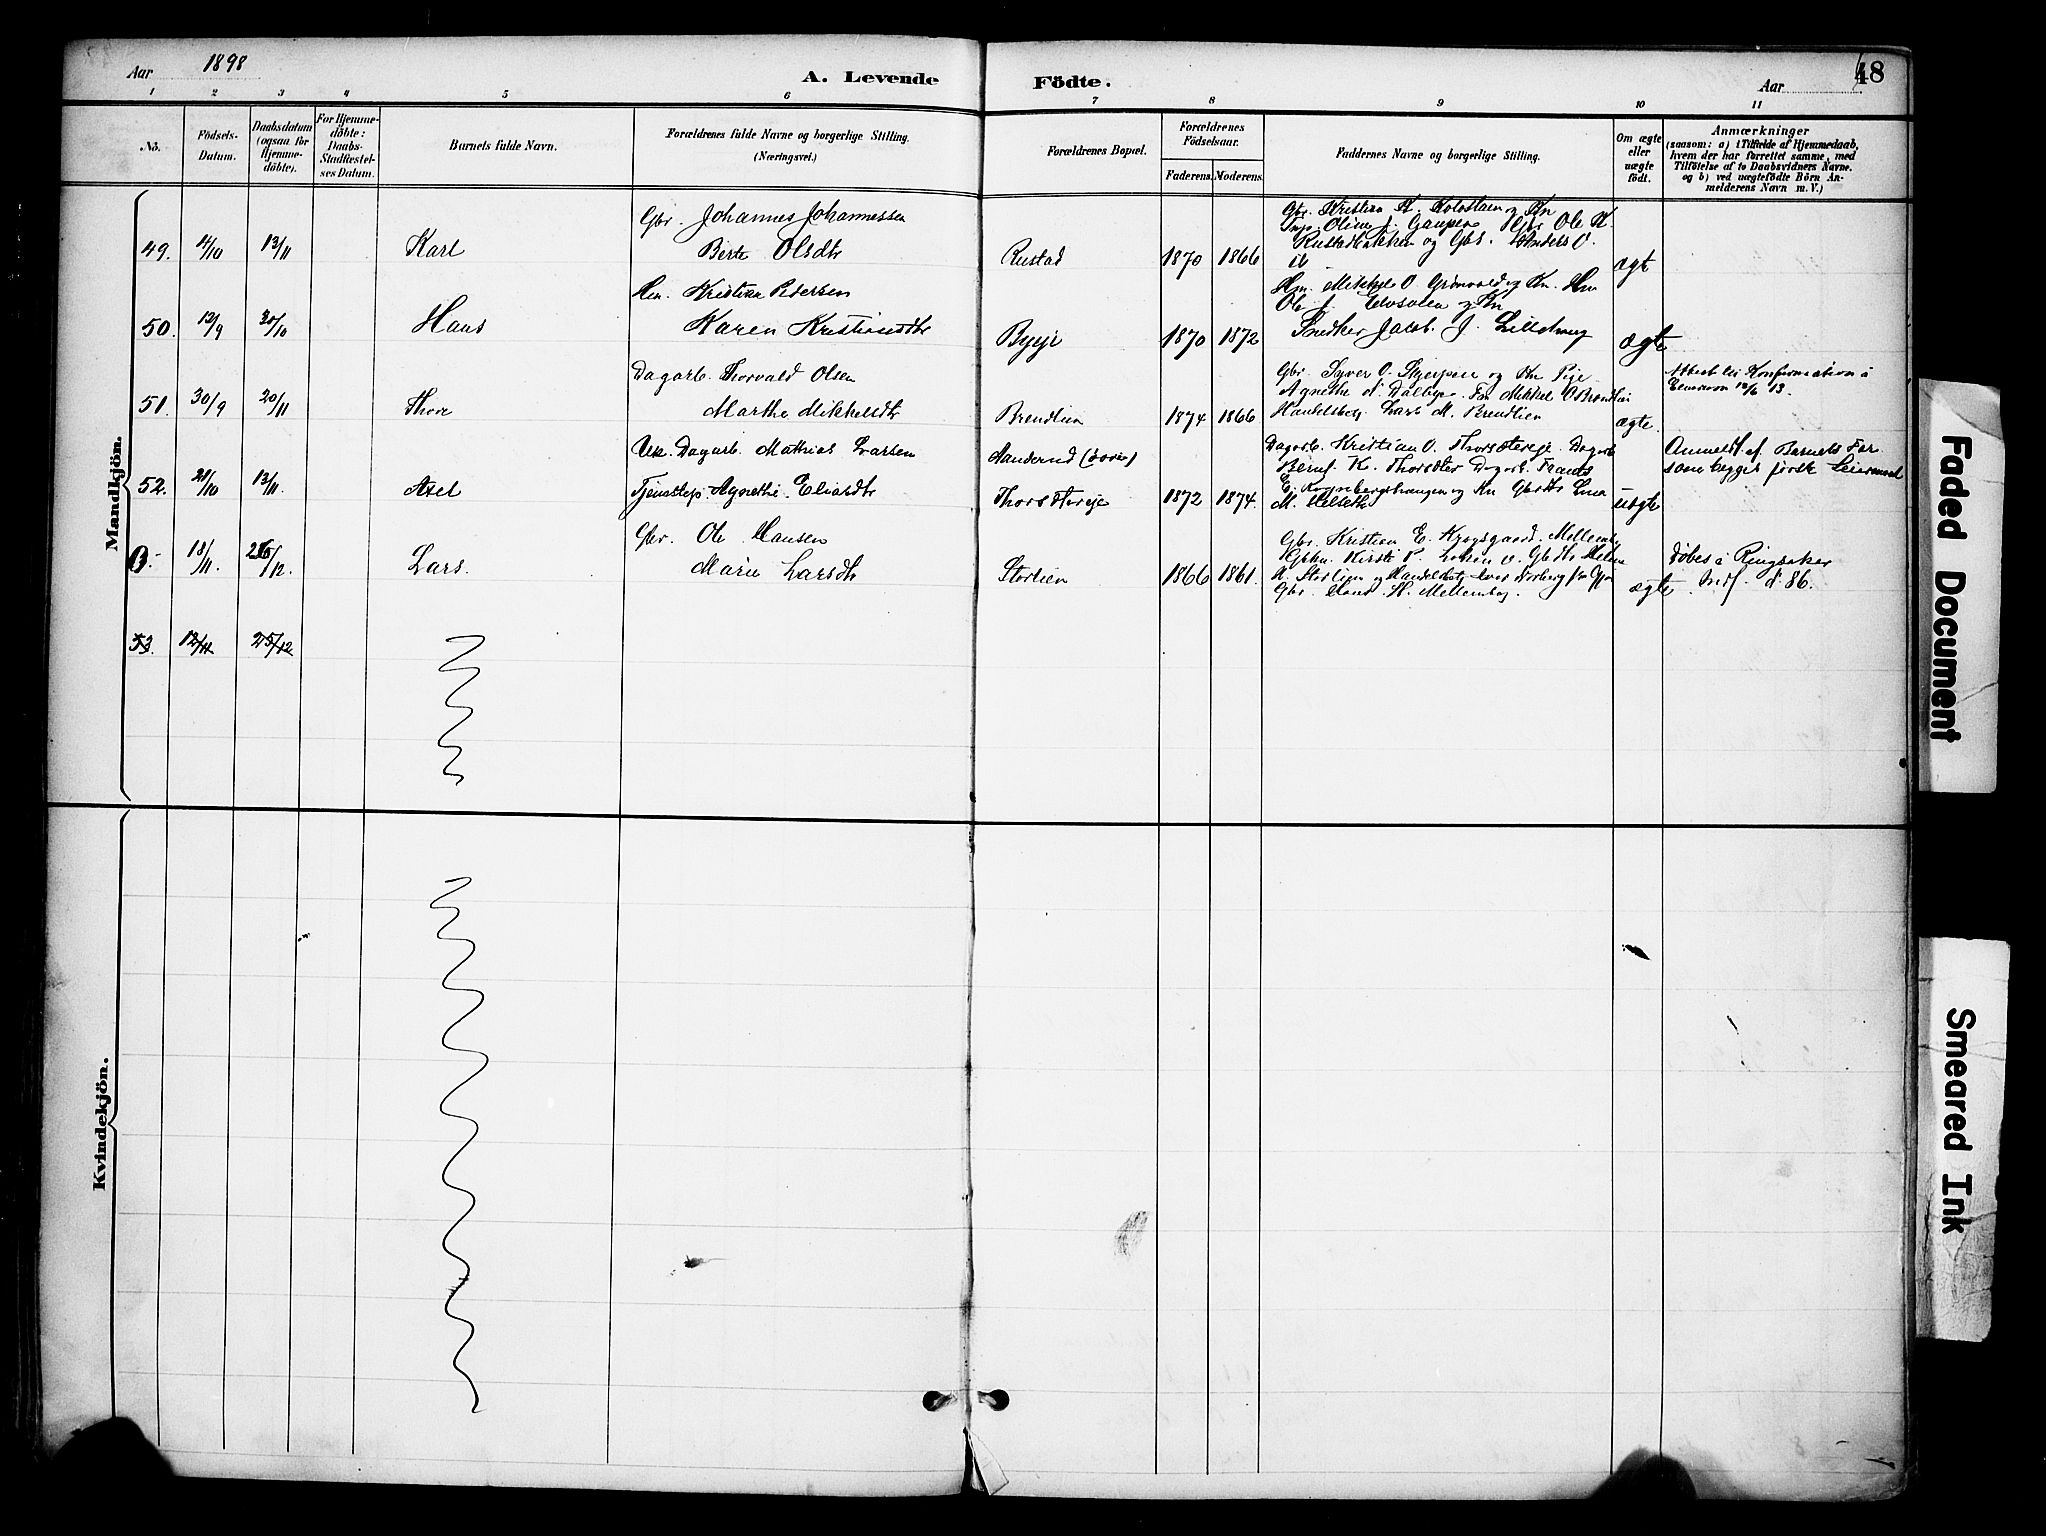 Aar 1898
A. Levende Födte.
Aar 48
1 2 3 4 5 6 7 8 9 10 11
No.
Födsels-Datum.
Daabsdatum (ogsaa for Hjemme-döbte).
For Hjemme-döbte: Daabs-Stadfæstel-ses Datum.
Barnets fulde Navn.
Forældrenes fulde Navne og borgerlige Stilling.
(Næringsvei.)
Forældrenes Bopæl.
Forældrenes Födselsaar.
Faderens. Moderens.
Faddernes Navne og borgerlige Stilling.
Om ægte eller uægte födt.
Anmærkninger
(saasom: a) i Tilfælde af Hjemmedaab,
hvem der har forrettet samme, med
Tilföielse af to Daabsvidners Navne.
og b) ved uægtefödte Börn An-
melderens Navn m. V.)
Mandkjön.
49. 4/10 13/11 Karl
Gbr. Johannes Johannessen
Berte Olsdtr
Rustad 1870 1866
Gbr. Kristian
Ole K.
og Gbs. Anders O.
ægt
50. 12/9 30/10 Hans
Hm. Kristian Pedersen
Karen Kristiansdtr
Byeje 1870 1872
Hm. Mikkel O. og Kn. Hm
Ole J. og Kn
Snedker Jacob J.
ægte
51. 30/9 20/11 Thore
Dagarb. Thorvald Olsen
Marthe Mikkelsdtr
Brendlien 1874 1866
Gbr. Syver O. og Kn Pige
Agnethe Dalbye. Fm Mikkel O Brendlien
Handelsbetj. Lars M. Brendlien
ægte.
Attest til Konfirmation i
12/6 13.
52. 21/10 13/11 Axel
Uk. Dagarb. Mathias Larsen
Tjenestep. Agnethe Eliasdtr
Thorsætereje 1872 1874.
Dagarb. Kristian O. Thorsætereje. Dagarb
Bernt K. Thorsæter Dagarb. Frants
og Kn Gbrdtr Lina
M.
uægte
Anmeldt af Barnets Far
som begges første Leiermaal
B. 18/11 26/12 Lars.
Gbr. Ole Hansen
Marie Larsdtr
Storlien 1866 1861.
Gbr. Kristian E. Krogsgaard. Mellemb
Kirsti P.
Storlien og Handelsbetj
Gbr. Hans H. Mellembog.
ægte
Døbes i Ringsaker
Indf. № 86.
53. 12/11 25/12
Kvindekjön.
Faded Document
Smeared Ink